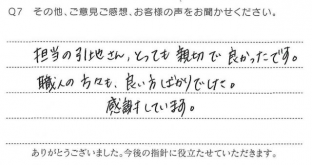 Q7 その他、ご意見ご感想、お客様の声をお聞かせください。
担当の引地さん、とっても親切で良かったです。
職人の方々も、良い方ばかりでした。
感謝しています。
ありがとうございました。今後の指針に役立たせていただきます。